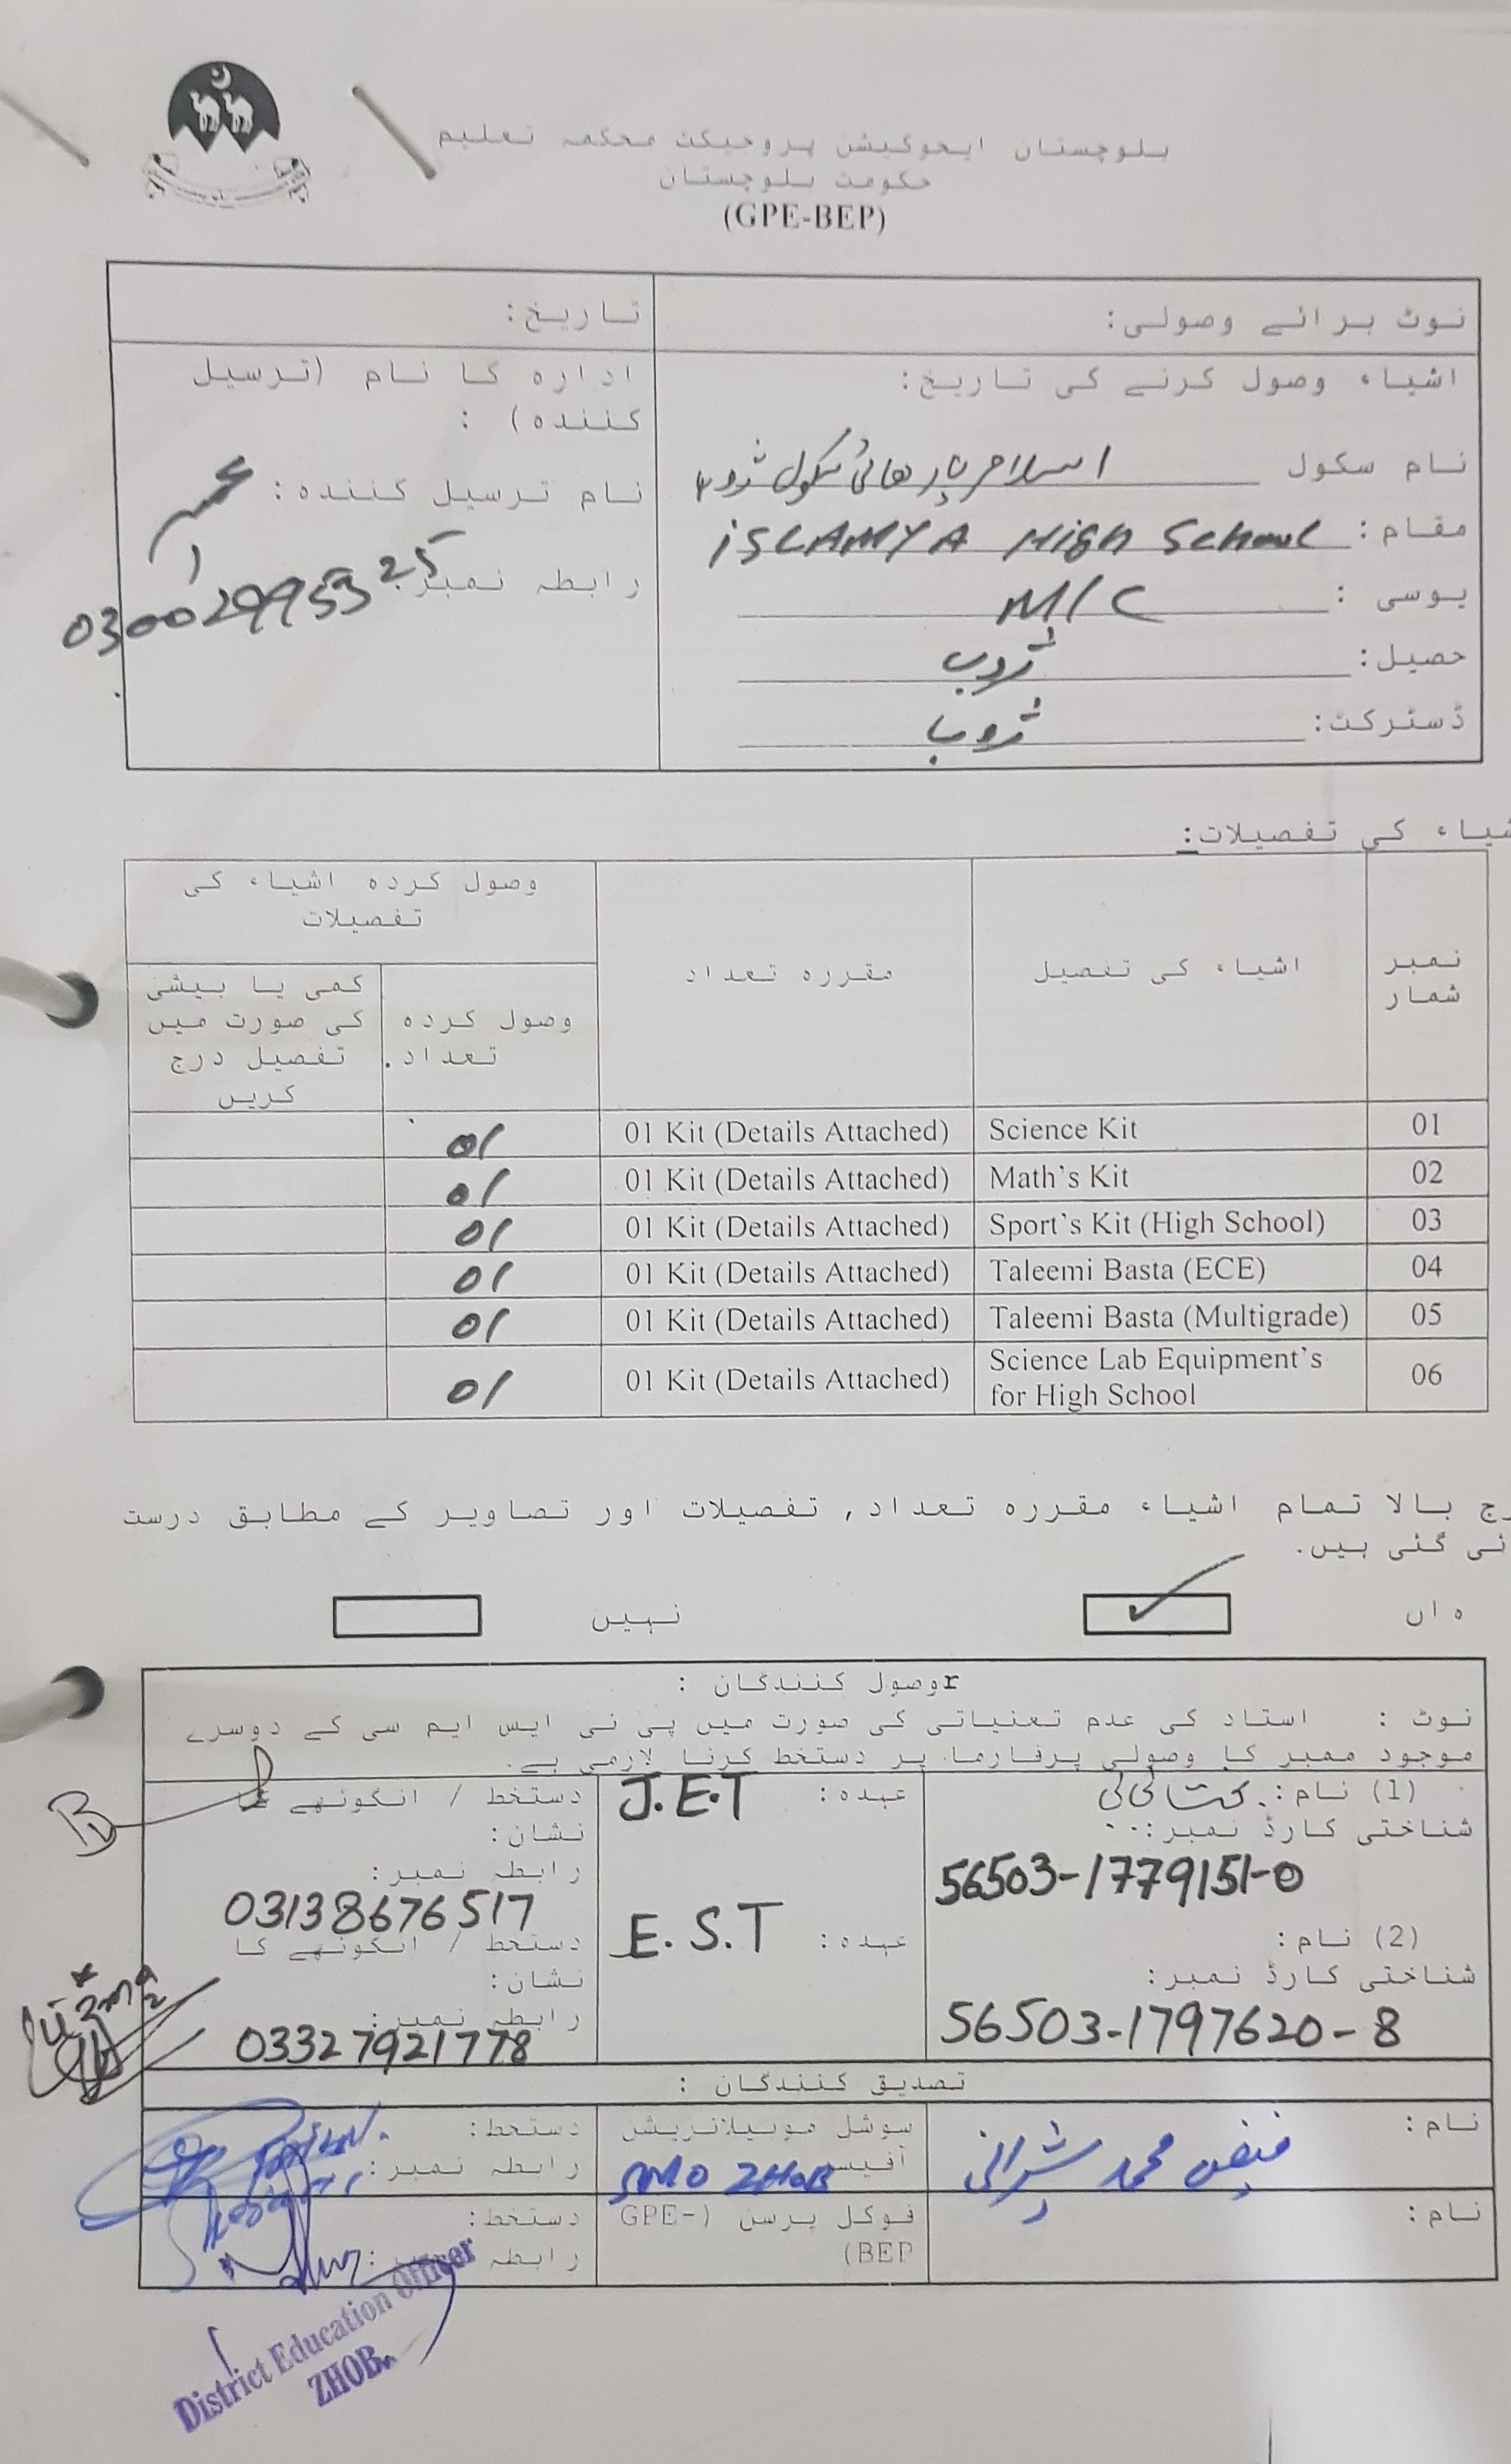 بلوچستان ایجوکیشن پروجیکٹ محکمہ تعلیم
حکومت بلوچستان
(GPE-BEP)
نوٹ برائے وصولی:
تاریخ:
اشیاء وصول کرنے کی تاریخ:
ادارہ کا نام (ترسیل
کنندہ) :
نام سکول
ہائی سکول ژوب
نام ترسیل کنندہ:
مقام: iSLAMYA HiGh School
رابطہ نمبر: 03002995325
یوسی : M/C
حصیل: ژوب
ڈسٹرکٹ: ژوب
شیاء کی تفصیلات:
نمبر شمار
اشیاء کی تفصیل
مقررہ تعداد
وصول کردہ اشیاء کی
تفصیلات
وصول کردہ
تعداد.
کمی یا بیشی
کی صورت میں
تفصیل درج
کریں
01 Science Kit 01 Kit (Details Attached) 01
02 Math's Kit 01 Kit (Details Attached) 01
03 Sport's Kit (High School) 01 Kit (Details Attached) 01
04 Taleemi Basta (ECE) 01 Kit (Details Attached) 01
05 Taleemi Basta (Multigrade) 01 Kit (Details Attached) 01
06 Science Lab Equipment's
for High School 01 Kit (Details Attached) 01
رج بالا تمام اشیاء مقررہ تعداد, تفصیلات اور تصاویر کے مطابق درست
ئی گئی ہیں.
ہاں
نہیں
rوصول کنندگان :
نوٹ : استاد کی عدم تعنیاتی کی صورت میں پی ٹی ایس ایم سی کے دوسرے
موجود ممبر کا وصولی پرفارما پر دستخط کرنا لازمی ہے.
(1) نام:
عہدہ: J.E.T
دستخط / انگوٹھے کا
نشان:
شناختی کارڈ نمبر:
56503-1779151-0
رابطہ نمبر:
03138676517
(2) نام:
عہدہ: E.S.T
دستخط / انگوٹھے کا
نشان:
شناختی کارڈ نمبر:
56503-1797620-8
رابطہ نمبر:
03327921778
تصدیق کنندگان :
نام: فیض محمد شیرانی
سوشل موبیلائزیشن
آفیسر SMO ZHOB
دستخط:
رابطہ نمبر:
نام:
فوکل پرسن (GPE-
BEP)
دستخط:
رابطہ
District Education Officer
ZHOB.